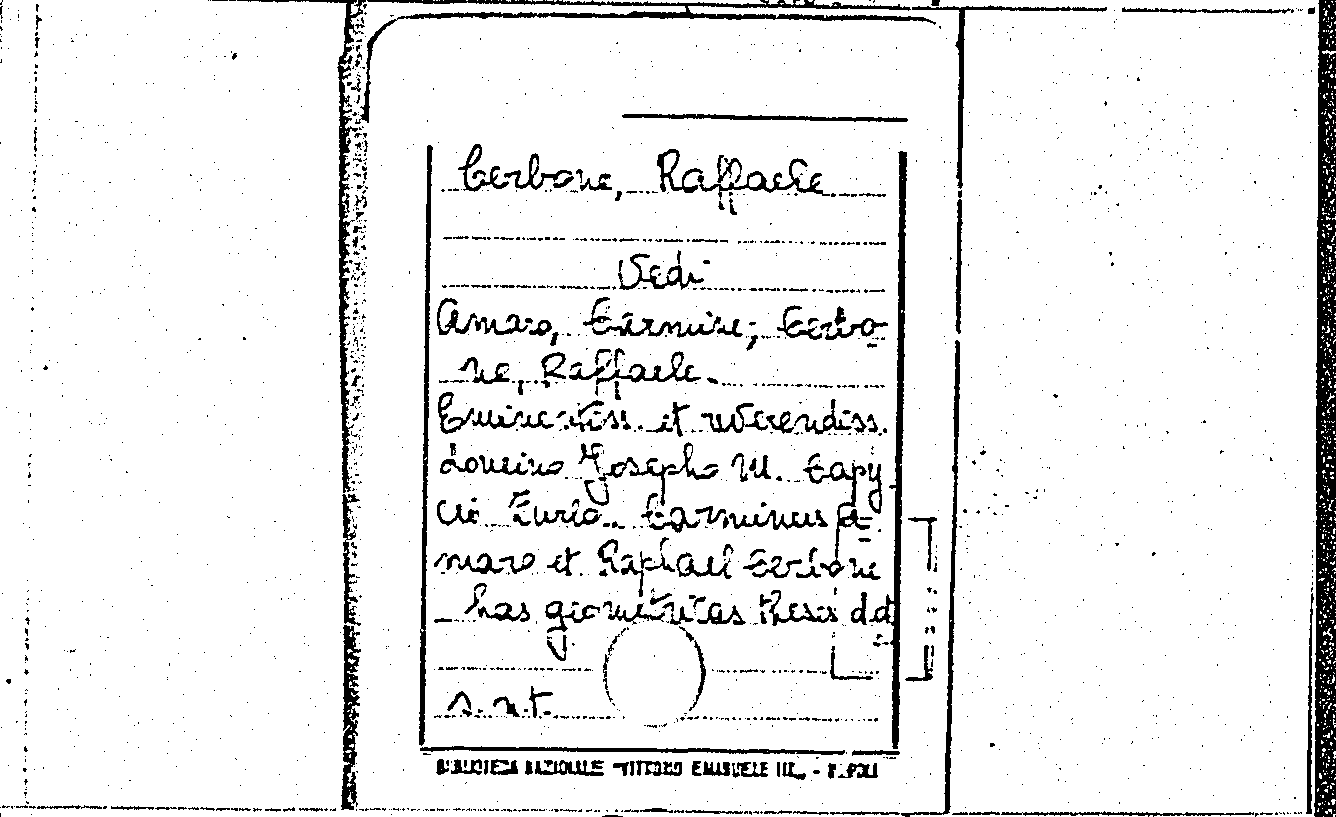 Cerbone, Raffaele
Vedi
Amaro, Carmine; Cerbo-
ne, Raffaele.
Eminentiss. et reverendiss.
domino Josepho M. Capy
cio Zurlo.. Carminus A-
maro et Raphael Cerbone
has geometricas thesis d.d.
s.n.t.
BIBLIOTECA NAZIONALE "VITTORIO EMANUELE III" - NAPOLI